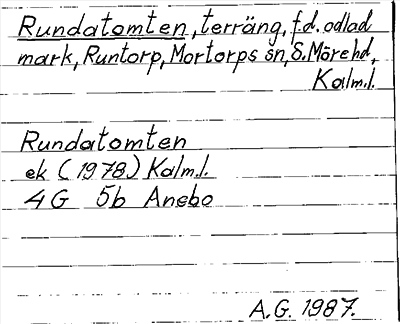 Rundatomten, terräng, f.d. odlad
mark, Runtorp, Mortorps sn, S. Möre hd,
Kalm.l.
Rundatomten
ek (1978) Kalm.l.
4G 5b Anebo
A.G. 1987.